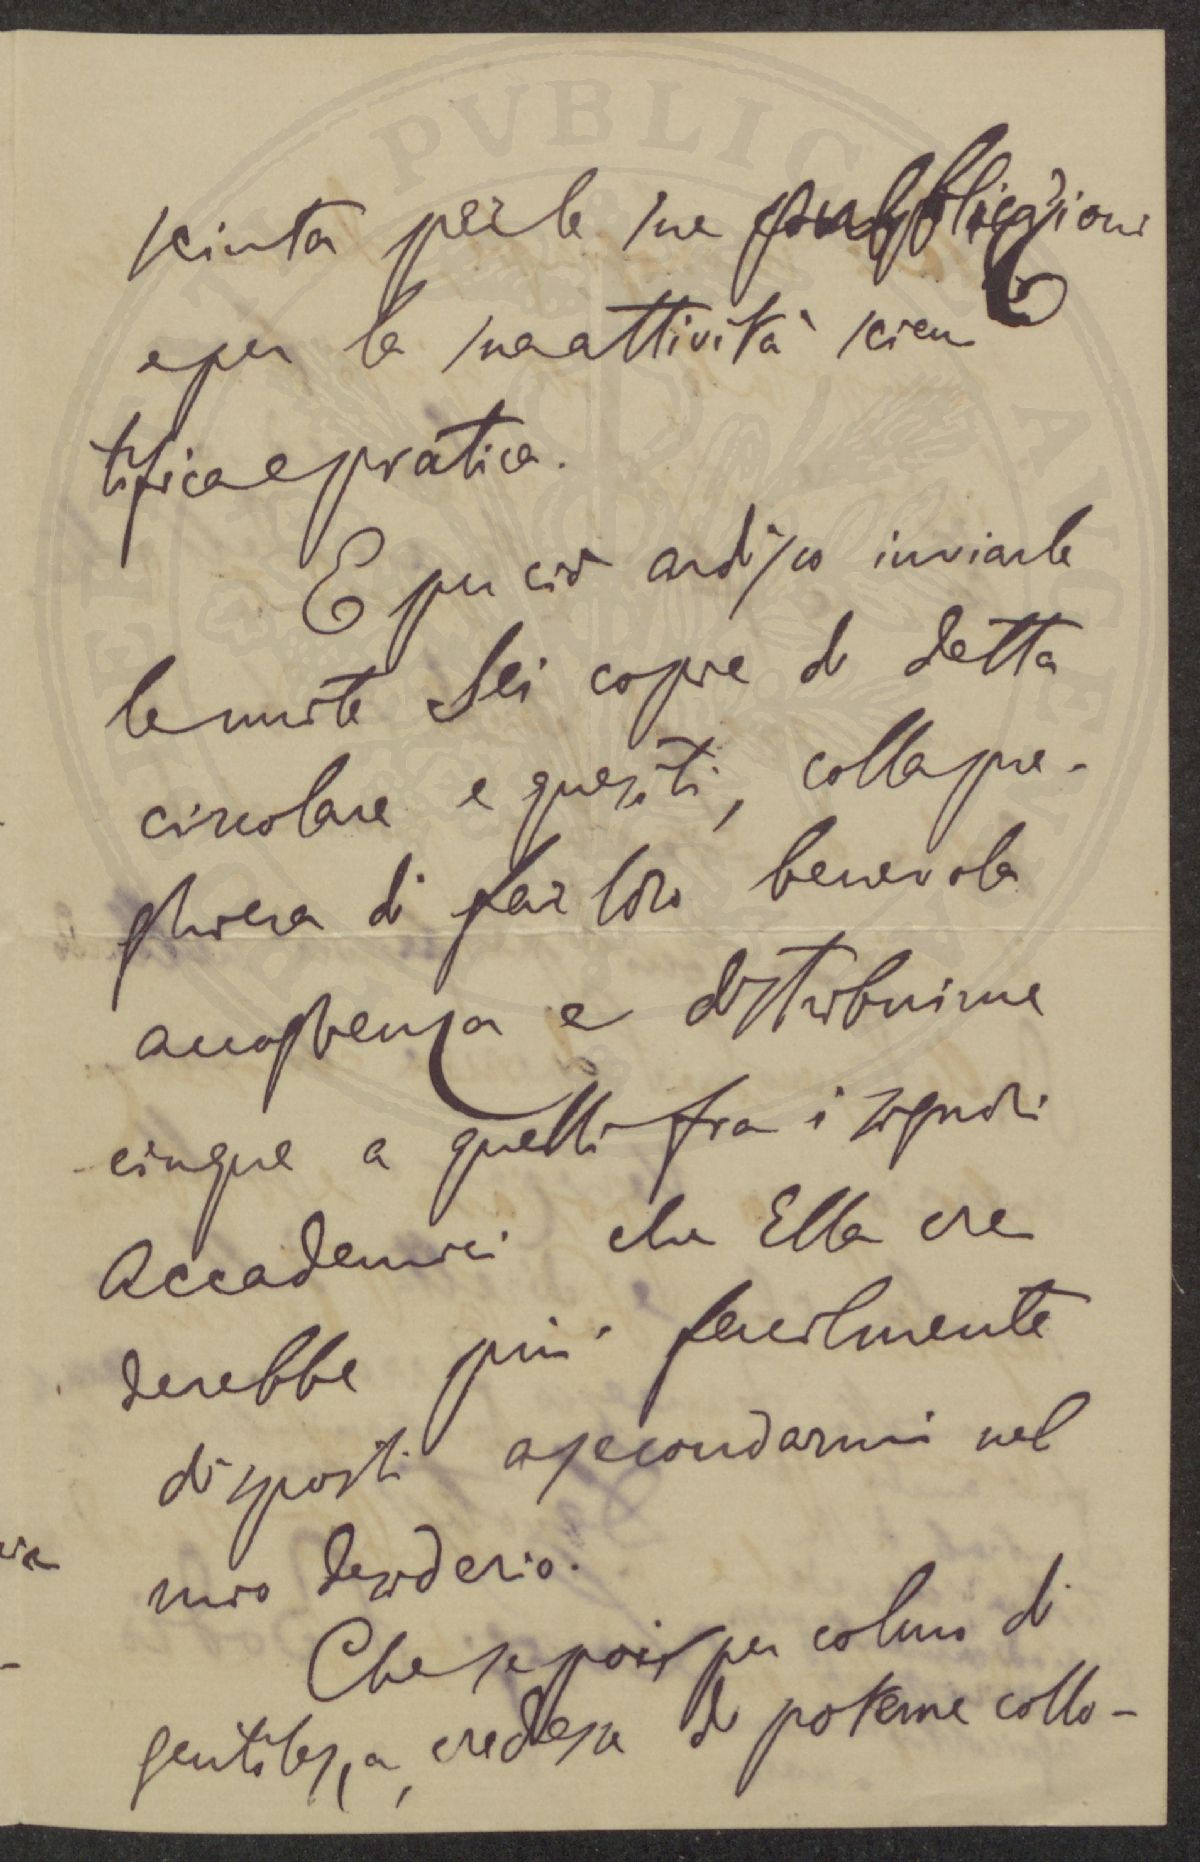 PVBLIC
AVGE
sciuta per le sue pubblicazioni
e per la sua attività scien
tifica e pratica.
E per ciò ardisco inviarle
le unite sei copie di detta
circolare e quesiti, colla pre-
ghiera di far loro benevola
accoglienza e distribuirne
cinque a quelli fra i signori
Accademici che Ella cre
derebbe più facilmente
disposti a secondarmi nel
mio desiderio.
Che se poi per colmo di
gentilezza, credesse di poterne collo-